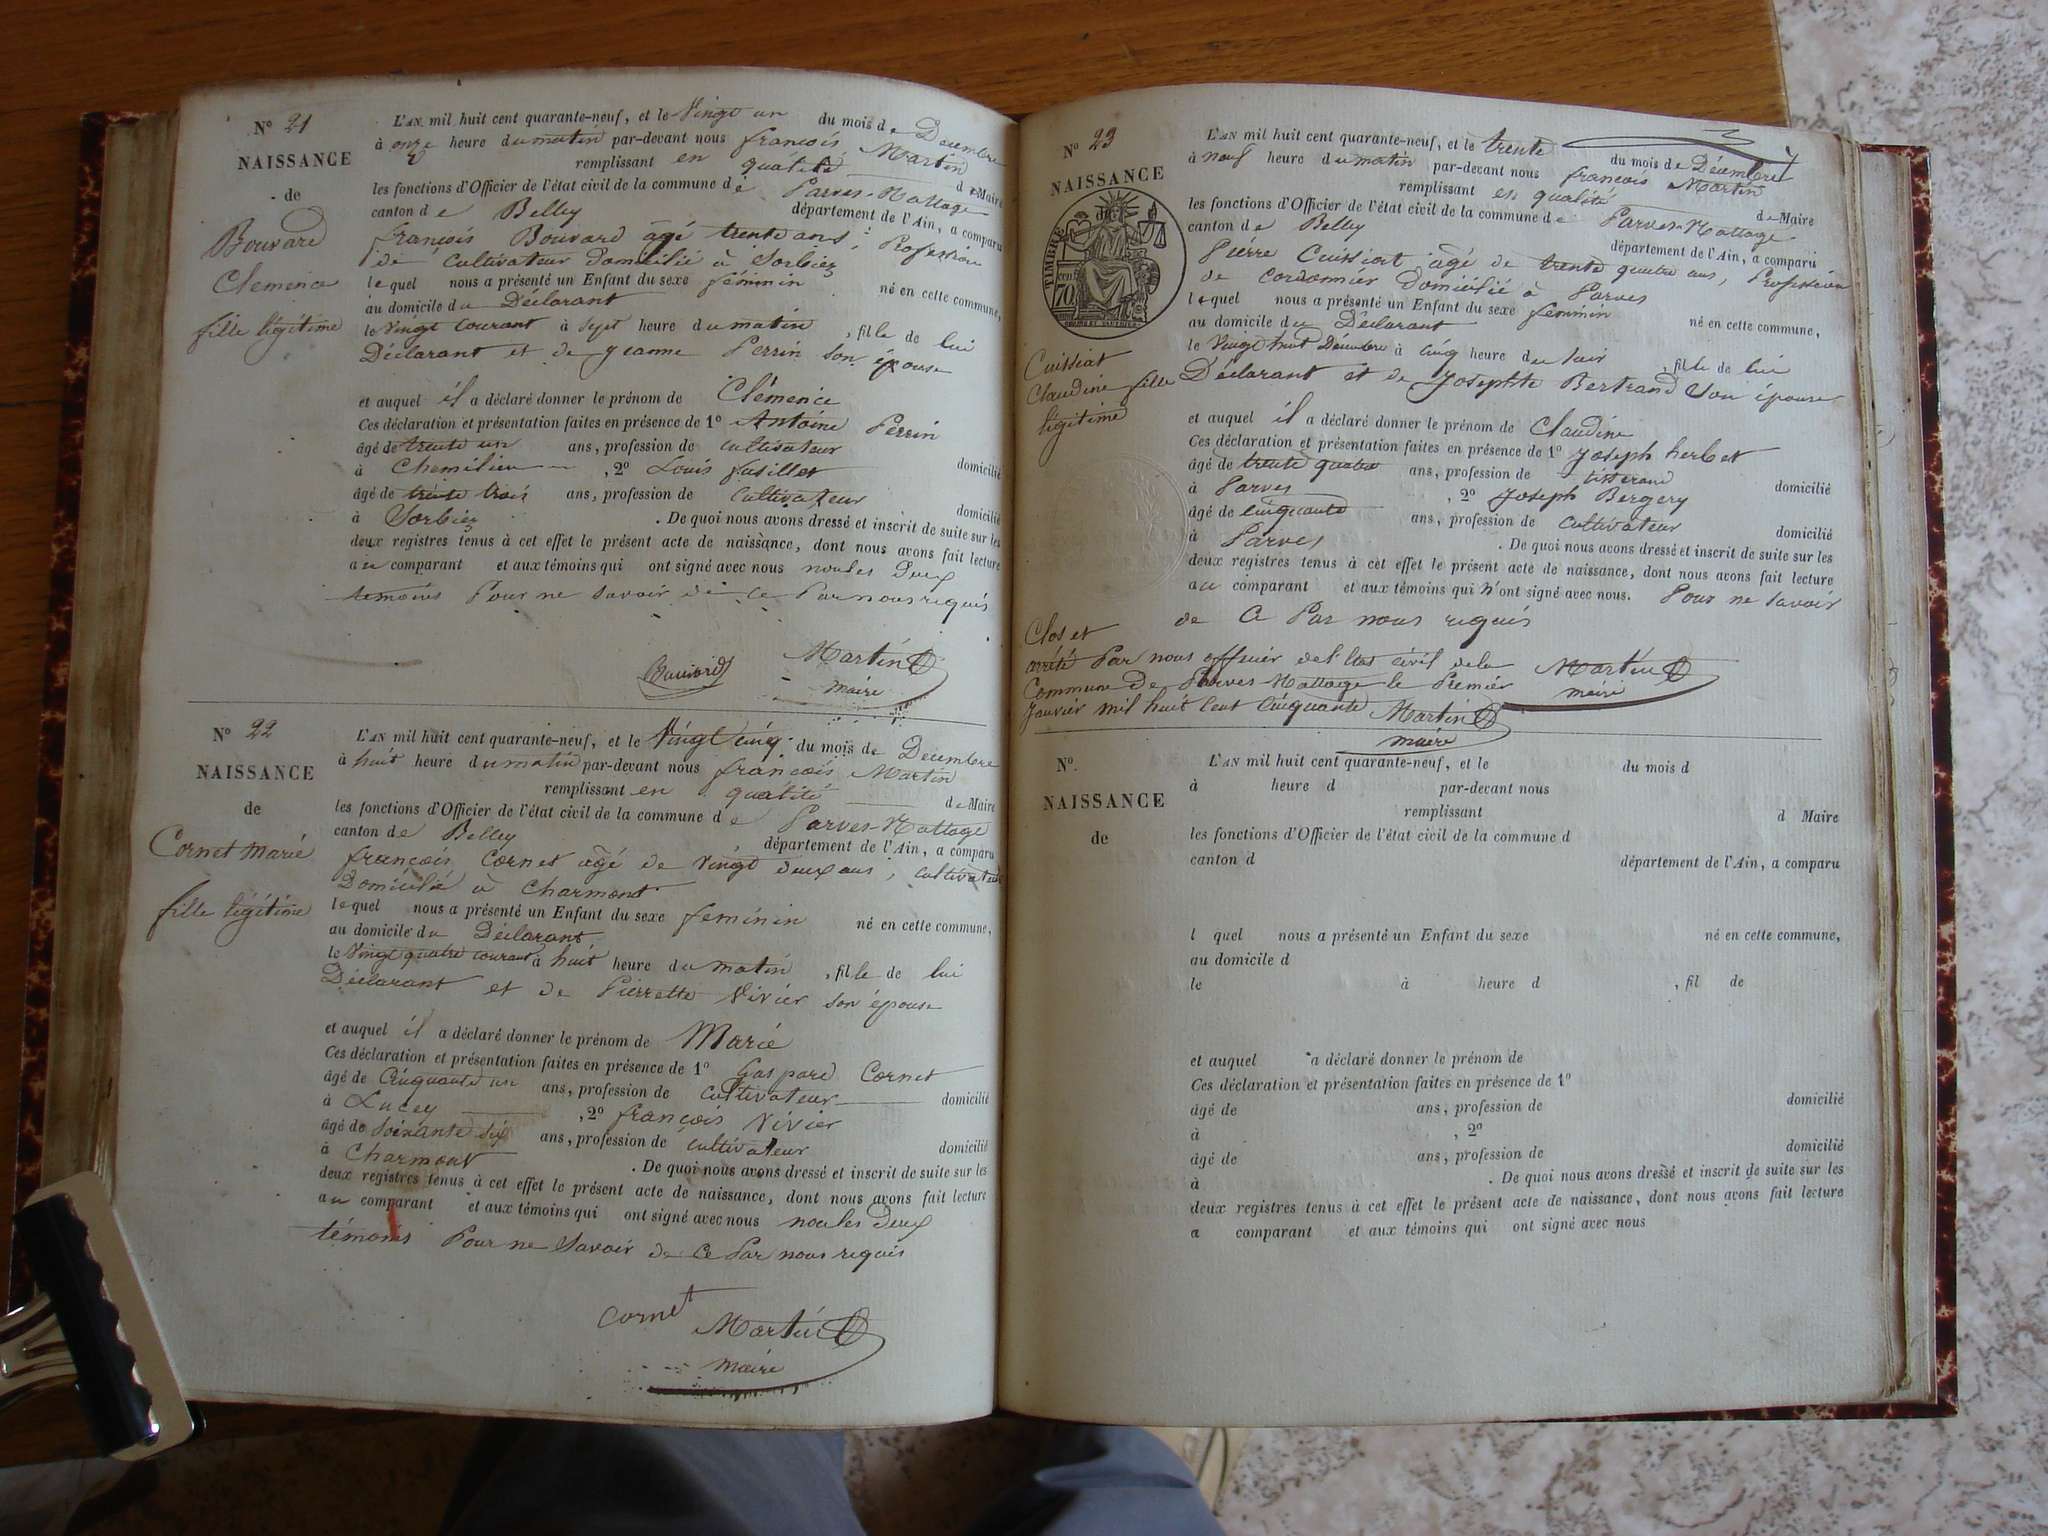 N° 21
NAISSANCE
de
Bouvard
Clemence
fille légitime
L'AN mil huit cent quarante-neuf, et le Vingt un du mois de Décembre
à onze heure du matin par-devant nous françois Martin
remplissant en qualité de Maire
les fonctions d'Officier de l'état civil de la commune de Parves-Nattage
canton de Belley département de l'Ain, a comparu
françois Bouvard agé trente ans, Profession
de cultivateur domicilié à Sorbiez
lequel nous a présenté un Enfant du sexe féminin né en cette commune,
au domicile du Déclarant
le Vingt courant à sept heure du matin, fille de lui
Déclarant et de jeanne Perrin son épouse
et auquel il a déclaré donner le prénom de Clémence
Ces déclaration et présentation faites en présence de 1° Antoine Perrin
âgé de trente un ans, profession de cultivateur domicilié
à Chemilieu, 2° Louis
âgé de trente trois ans, profession de cultivateur domicilié
à Sorbiez. De quoi nous avons dressé et inscrit de suite sur les
deux registres tenus à cet effet le présent acte de naissance, dont nous avons fait lecture
au comparant et aux témoins qui ont signé avec nous non les deux
temoins Pour ne savoir de ce Par nous requis
Bouvard Martin
maire
N° 22
NAISSANCE
de
Cornet Marie
fille légitime
L'AN mil huit cent quarante-neuf, et le Vingt cinq du mois de Décembre
à huit heure du matin par-devant nous françois Martin
remplissant en qualité de Maire
les fonctions d'Officier de l'état civil de la commune de Parves-Nattage
canton de Belley département de l'Ain, a comparu
françois Cornet agé de vingt deux ans, cultivateur
Domicilié à Charmont
lequel nous a présenté un Enfant du sexe feminin né en cette commune,
au domicile du Déclarant
le Vingt quatre courant à huit heure du matin, fille de lui
Déclarant et de Pierrette Vivier son épouse
et auquel il a déclaré donner le prénom de Marie
Ces déclaration et présentation faites en présence de 1° Gaspard Cornet
âgé de Cinquante un ans, profession de cultivateur domicilié
à Lucey, 2° françois Vivier
âgé de soixante six ans, profession de cultivateur domicilié
à Charmont. De quoi nous avons dressé et inscrit de suite sur les
deux registres tenus à cet effet le présent acte de naissance, dont nous avons fait lecture
au comparant et aux témoins qui ont signé avec nous non les deux
témoins Pour ne Savoir de ce Par nous requis
Cornet
Martin
maire
N° 23
NAISSANCE
de
TIMBRE
70
Cuissiat
Claudine fille
légitime
L'AN mil huit cent quarante-neuf, et le trente du mois de Décembre
à neuf heure du matin par-devant nous françois Martin
remplissant en qualité de Maire
les fonctions d'Officier de l'état civil de la commune de Parves-Nattage
canton de Belley département de l'Ain, a comparu
Pierre Cuissiat agé de trente quatre ans, Profession
de cordonnier Domicilié à Parves
lequel nous a présenté un Enfant du sexe feminin né en cette commune,
au domicile du Déclarant
le Vingt huit Décembre à cinq heure du soir, fille de lui
Déclarant et de Josephte Bertrand Son épouse
et auquel il a déclaré donner le prénom de Claudine
Ces déclaration et présentation faites en présence de 1° Joseph herbet
âgé de trente quatre ans, profession de tisserand domicilié
à Parves, 2° Joseph Bergery
âgé de cinquante ans, profession de cultivateur domicilié
à Parves. De quoi nous avons dressé et inscrit de suite sur les
deux registres tenus à cet effet le présent acte de naissance, dont nous avons fait lecture
au comparant et aux témoins qui n'ont signé avec nous. Pour ne savoir
de Ce Par nous requis
Martin
maire
Clos et
arrêté Par nous officier de l'état civil de la
Commune de Parves Nattage le Premier
Janvier mil huit cent Cinquante Martin
maire
N°.
NAISSANCE
de
L'AN mil huit cent quarante-neuf, et le du mois d
à heure d par-devant nous
remplissant d Maire
les fonctions d'Officier de l'état civil de la commune d
canton d département de l'Ain, a comparu
l quel nous a présenté un Enfant du sexe né en cette commune,
au domicile d
le à heure d , fil de
et auquel a déclaré donner le prénom de
Ces déclaration et présentation faites en présence de 1°
âgé de ans, profession de domicilié
à , 2°
âgé de ans, profession de domicilié
à . De quoi nous avons dressé et inscrit de suite sur les
deux registres tenus à cet effet le présent acte de naissance, dont nous avons fait lecture
a comparant et aux témoins qui ont signé avec nous